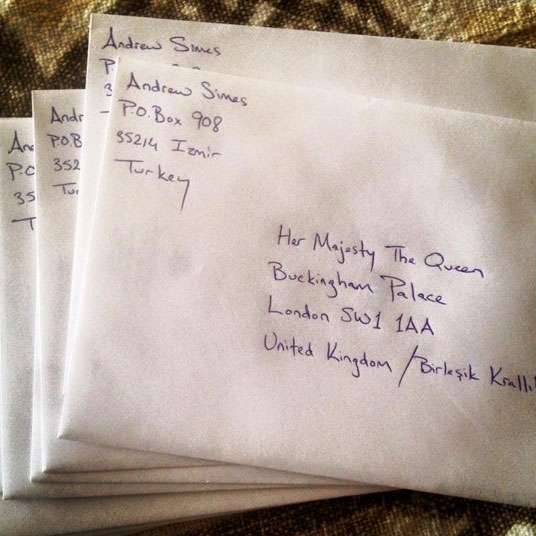 Andrew Simes
P
3
Andrew Simes
P.O. Box 908
35214 Izmir
Turkey
Her Majesty The Queen
Buckingham Palace
London SW1 1AA
United Kingdom / Birleşik Krallı
Andr
P.O.B
352
Tur
An
P.O
35
T